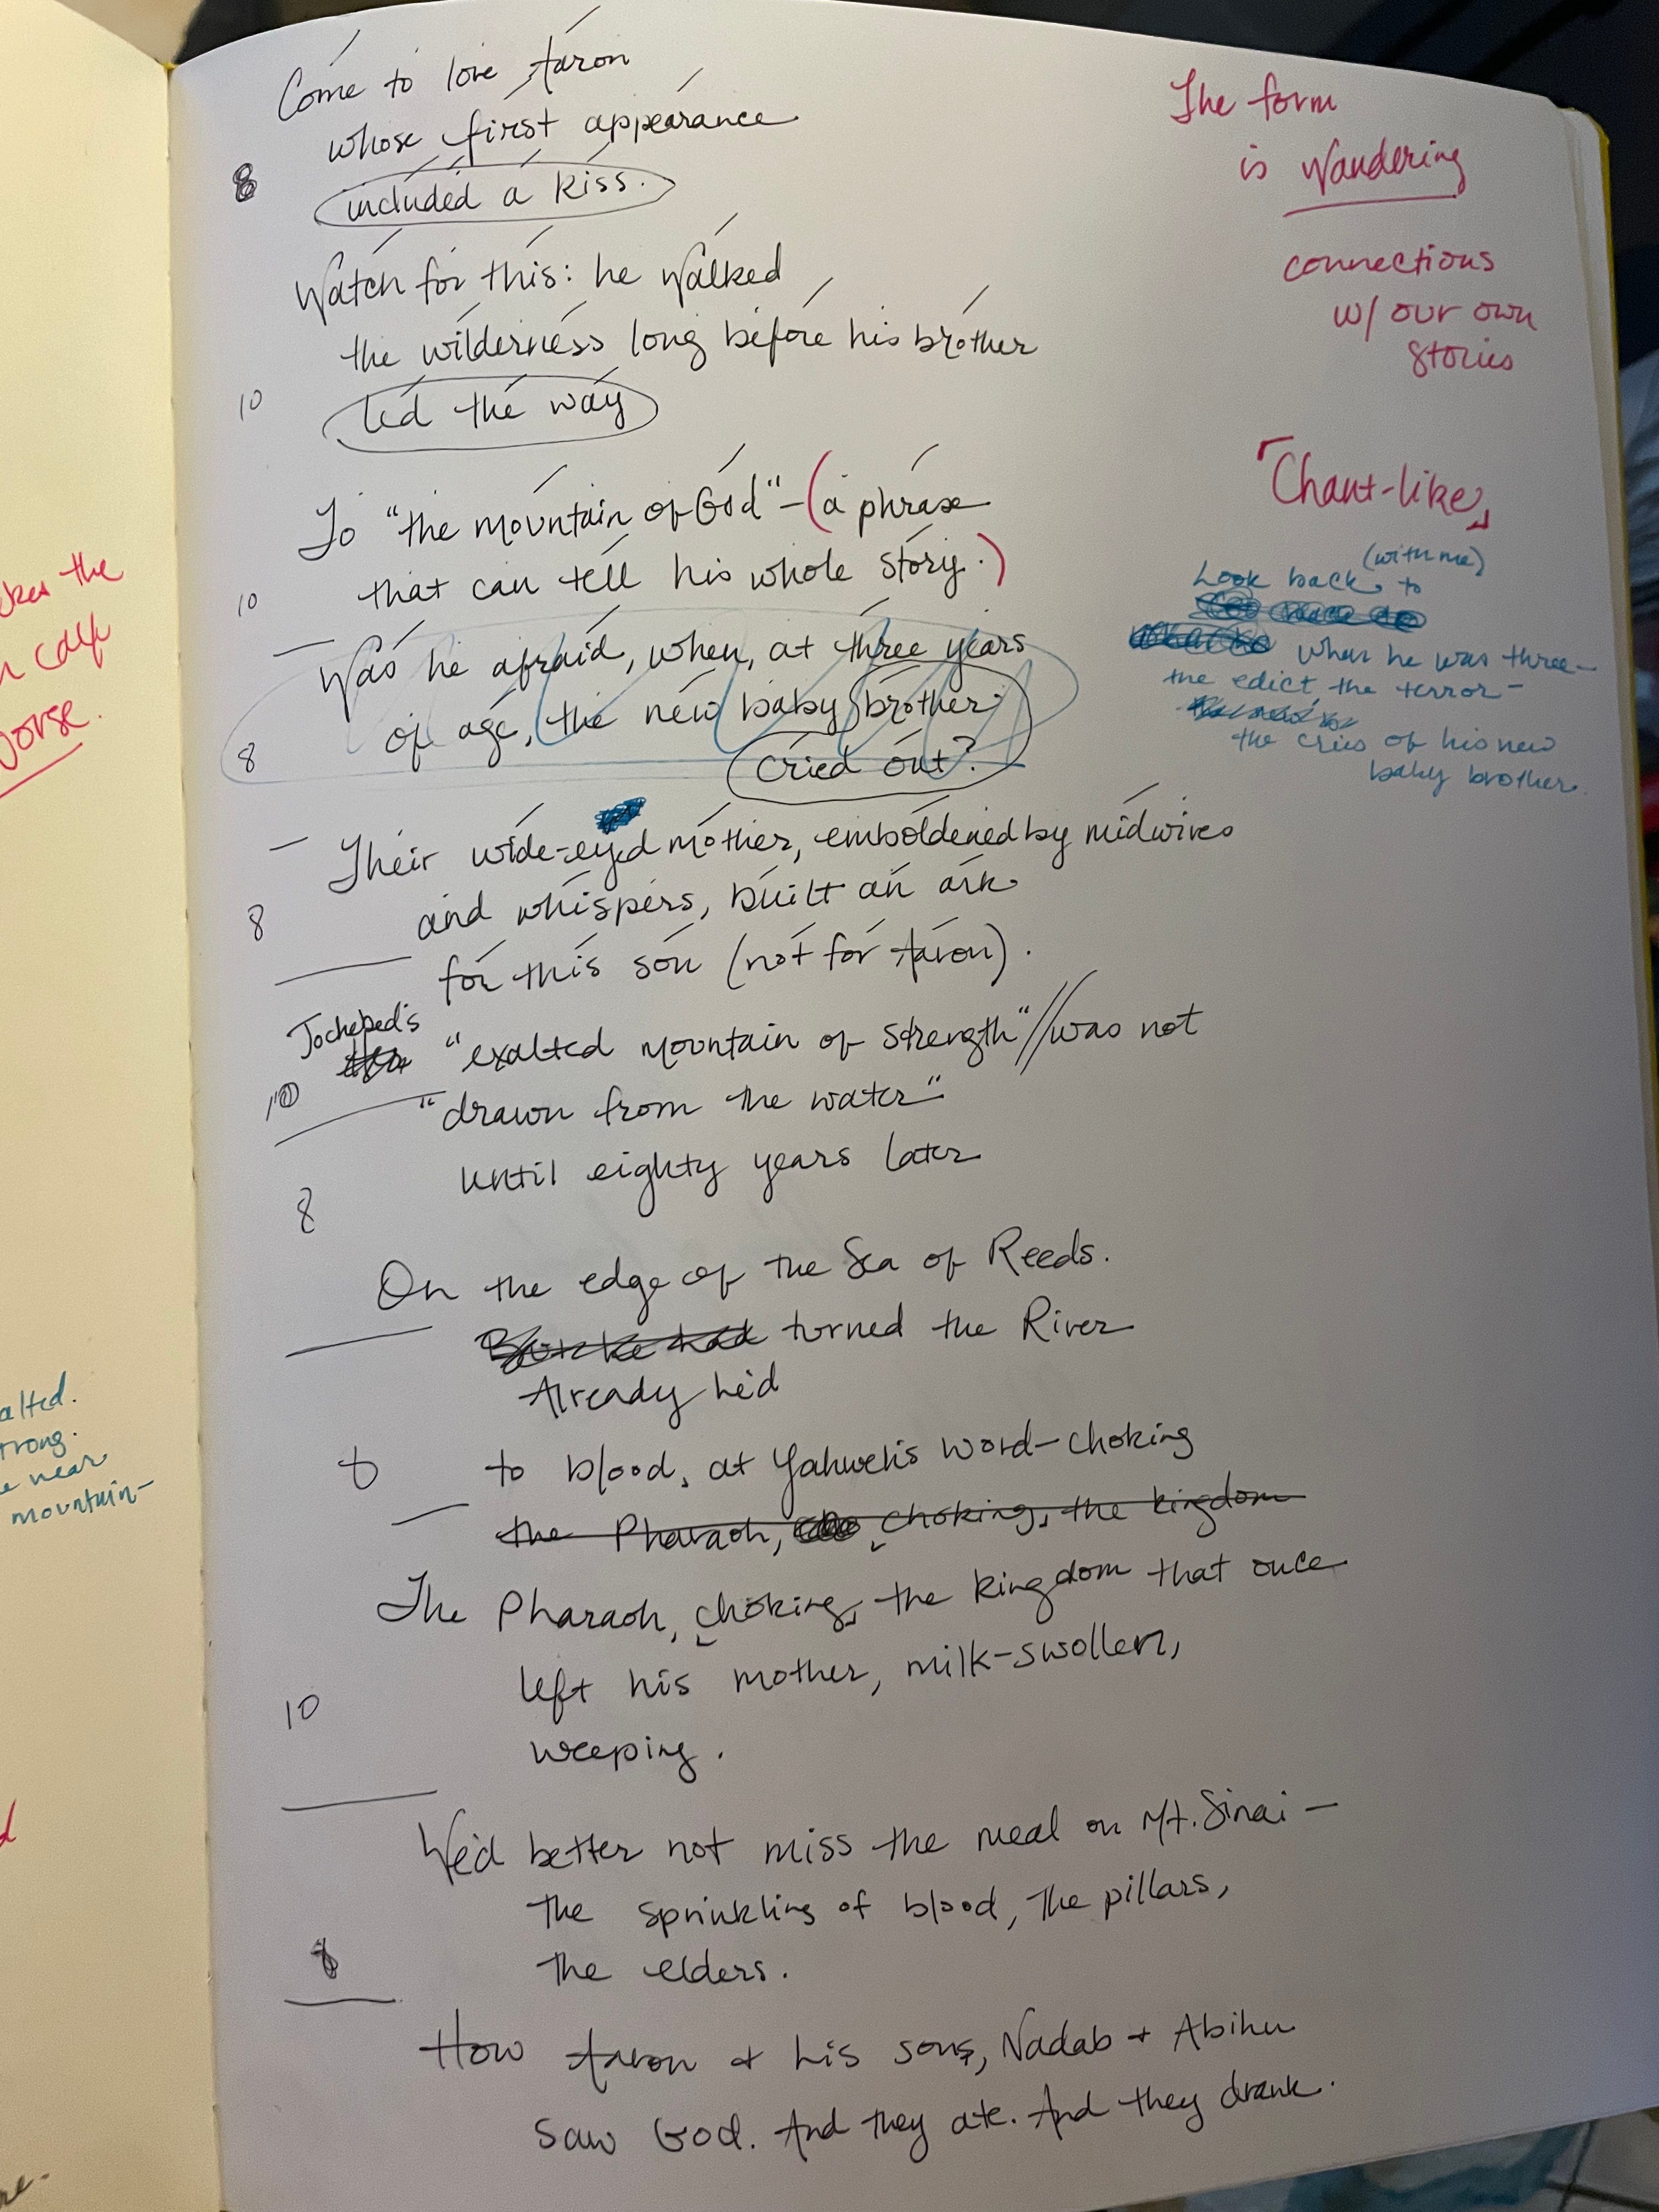 Come to love Aaron
whose first appearance
8
included a kiss.
Watch for this: he walked
the wilderness long before his brother
10
led the way
To "the mountain of God" - (a phrase
that can tell his whole story.)
10
Was he afraid, when, at three years
of age, the new baby brother
8
cried out?
Their wide-eyed mother, emboldened by midwives
and whispers, built an ark
8
for this son (not for Aaron).
Jochebed's
"exalted mountain of strength" // was not
10
"drawn from the water"
until eighty years later
8
On the edge of the Sea of Reeds.
But he had turned the River
Already he'd
8
to blood, at Yahweh's word - choking
the Pharaoh, choking, the kingdom
The Pharaoh, choking, the kingdom that once
left his mother, milk-swollen,
10
weeping.
We'd better not miss the meal on Mt. Sinai —
the sprinkling of blood, the pillars,
8
the elders.
How Aaron + his sons, Nadab + Abihu
saw God. And they ate. And they drank.
The form
is Wandering
connections
w/ our own
stories
「Chant-like」
(with me)
Look back to
when he was three —
the edict, the terror —
the cries of his new
baby brother.
the
calf
worse.
strong.
near
mountain -